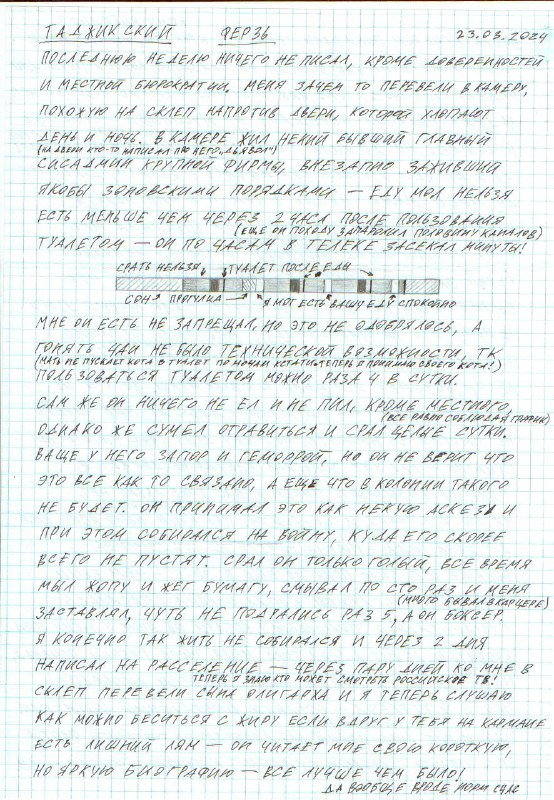 ТАДЖИКСКИЙ ФЕРЗЬ 23.03.2024
ПОСЛЕДНЮЮ НЕДЕЛЮ НИЧЕГО НЕ ПИСАЛ, КРОМЕ ДОВЕРЕННОСТЕЙ
И МЕСТНОЙ БЮРОКРАТИИ. МЕНЯ ЗАЧЕМ ТО ПЕРЕВЕЛИ В КАМЕРУ,
ПОХОЖУЮ НА СКЛЕП НАПРОТИВ ДВЕРИ, КОТОРОЙ ХЛОПАЮТ
ДЕНЬ И НОЧЬ. В КАМЕРЕ ЖИЛ НЕКИЙ БЫВШИЙ ГЛАВНЫЙ
(НА ДВЕРИ КТО-ТО НАПИСАЛ ПРО НЕГО „ДЬЯВОЛ")
СИСАДМИН КРУПНОЙ ФИРМЫ, ВНЕЗАПНО ЗАЖИВШИЙ
ЯКОБЫ ЗОНОВСКИМИ ПОРЯДКАМИ — ЕДУ МОЛ НЕЛЬЗЯ
ЕСТЬ МЕНЬШЕ ЧЕМ ЧЕРЕЗ 2 ЧАСА ПОСЛЕ ПОЛЬЗОВАНИЯ
(ЕЩЕ ОН ПОХОДУ ЗАПАРОЛИЛ ПОЛОВИНУ КАНАЛОВ)
ТУАЛЕТОМ — ОН ПО ЧАСАМ В ТЕЛЕКЕ ЗАСЕКАЛ МИНУТЫ!
СРАТЬ НЕЛЬЗЯ ТУАЛЕТ ПОСЛЕ ЕДЫ
СОН ПРОГУЛКА Я МОГ ЕСТЬ ВАШУ ЕДУ СПОКОЙНО
МНЕ ОН ЕСТЬ НЕ ЗАПРЕЩАЛ, НО ЭТО НЕ ОДОБРЯЛОСЬ, А
ГОНЯТЬ ЧАИ НЕ БЫЛО ТЕХНИЧЕСКОЙ ВОЗМОЖНОСТИ, Т.К.
(МАТЬ НЕ ПУСКАЕТ КОТА В ТУАЛЕТ ПО НОЧАМ КСТАТИ. ТЕПЕРЬ Я ПОНИМАЮ СВОЕГО КОТА!)
ПОЛЬЗОВАТЬСЯ ТУАЛЕТОМ МОЖНО РАЗА 4 В СУТКИ.
САМ ЖЕ ОН НИЧЕГО НЕ ЕЛ И НЕ ПИЛ, КРОМЕ МЕСТНОГО,
(ВСЕ РАВНО СОБЛЮДАЯ ГРАФИК)
ОДНАКО ЖЕ СУМЕЛ ОТРАВИТЬСЯ И СРАЛ ЦЕЛЫЕ СУТКИ.
ВАЩЕ У НЕГО ЗАПОР И ГЕМОРРОЙ, НО ОН НЕ ВЕРИТ ЧТО
ЭТО ВСЕ КАК ТО СВЯЗАНО, А ЕЩЕ ЧТО В КОЛОНИИ ТАКОГО
НЕ БУДЕТ. ОН ПРИНИМАЛ ЭТО КАК НЕКУЮ АСКЕЗУ И
ПРИ ЭТОМ СОБИРАЛСЯ НА ВОЙНУ, КУДА ЕГО СКОРЕЕ
ВСЕГО НЕ ПУСТЯТ. СРАЛ ОН ТОЛЬКО ГОЛЫЙ, ВСЕ ВРЕМЯ
МЫЛ ЖОПУ И ЖЕГ БУМАГУ, СМЫВАЛ ПО СТО РАЗ И МЕНЯ
(МНОГО БЫВАЛ В КАРЦЕРЕ)
ЗАСТАВЛЯЛ, ЧУТЬ НЕ ПОДРАЛИСЬ РАЗ 5, А ОН БОКСЕР.
Я КОНЕЧНО ТАК ЖИТЬ НЕ СОБИРАЛСЯ И ЧЕРЕЗ 2 ДНЯ
НАПИСАЛ НА РАССЕЛЕНИЕ — ЧЕРЕЗ ПАРУ ДНЕЙ КО МНЕ В
ТЕПЕРЬ Я ЗНАЮ КТО МОЖЕТ СМОТРЕТЬ РОССИЙСКОЕ ТВ!
СКЛЕП ПЕРЕВЕЛИ СЫНА ОЛИГАРХА И Я ТЕПЕРЬ СЛУШАЮ
КАК МОЖНО БЕСИТЬСЯ С ЖИРУ ЕСЛИ ВДРУГ У ТЕБЯ НА КАРМАНЕ
ЕСТЬ ЛИШНИЙ ЛЯМ — ОН ЧИТАЕТ МНЕ СВОЮ КОРОТКУЮ,
НО ЯРКУЮ БИОГРАФИЮ — ВСЕ ЛУЧШЕ ЧЕМ БЫЛО!
ДА ВООБЩЕ ВРОДЕ НОРМ